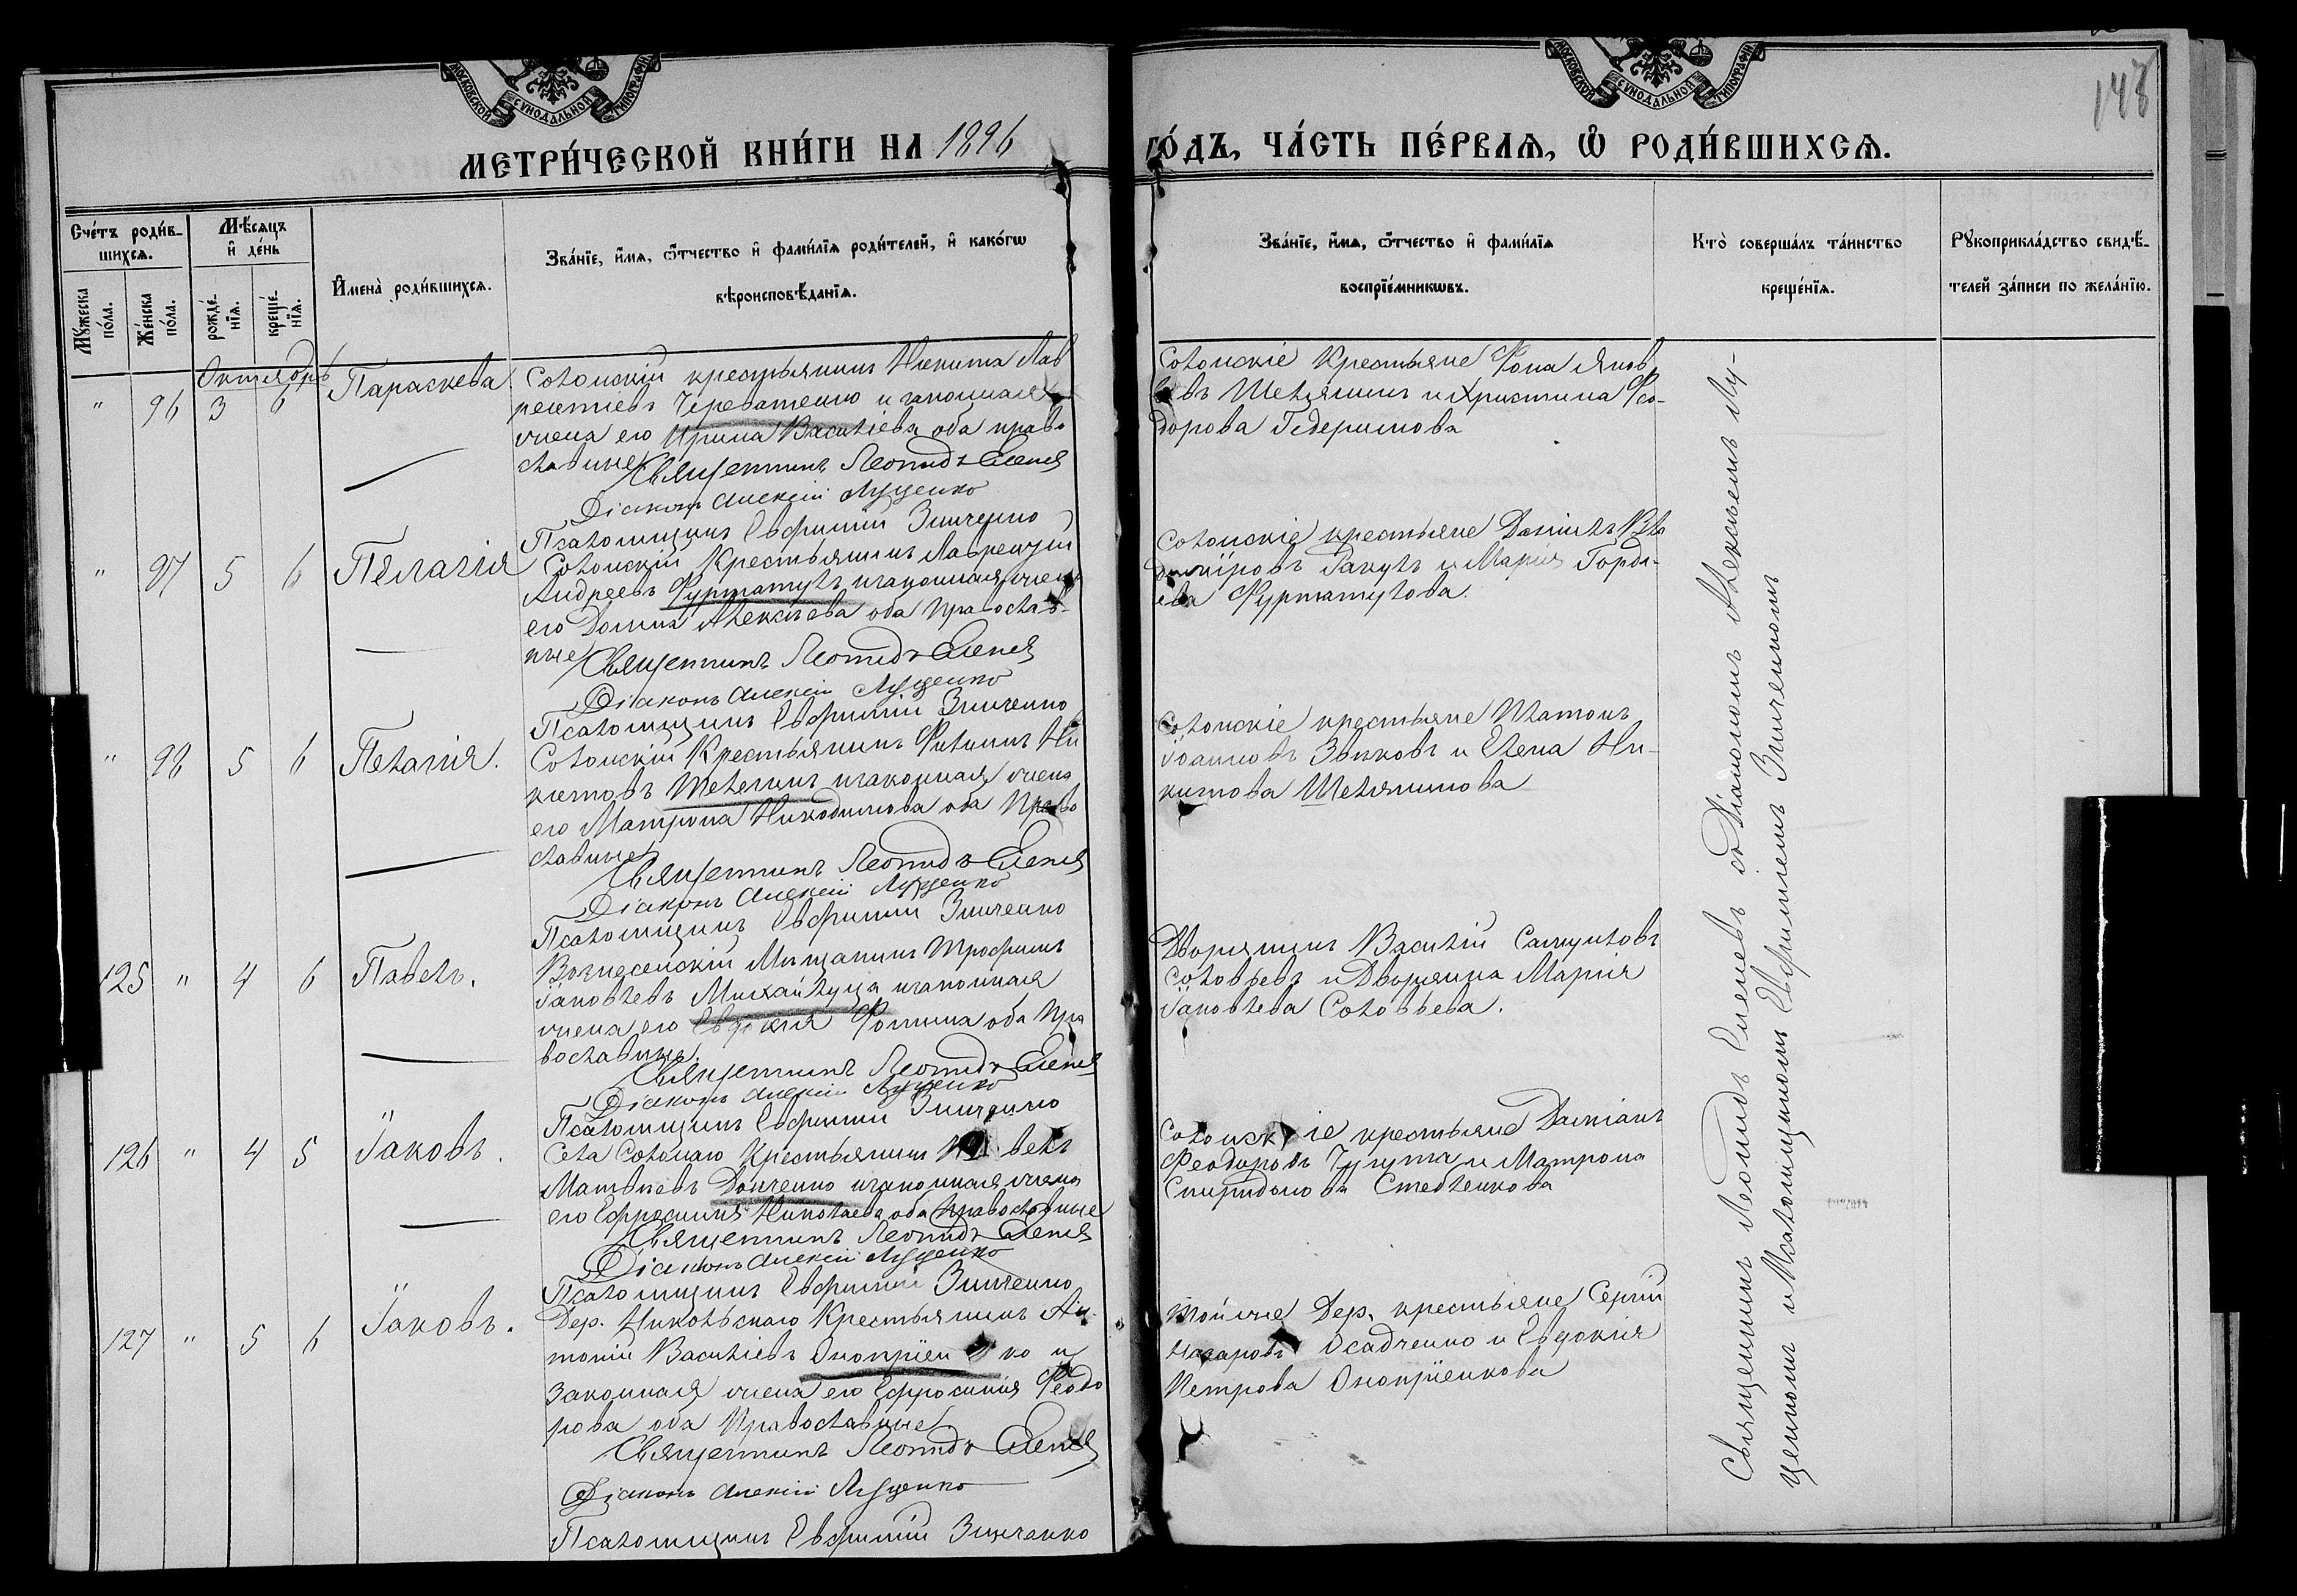 МОСКОВСКОЙ СѴНОДАЛЬНОЙ ТИПОГРАФІИ
МОСКОВСКОЙ СѴНОДАЛЬНОЙ ТИПОГРАФІИ
148
МЕТРИ́ЧЕСКОЙ КНИ́ГИ НА 1896
ГО́ДЪ, ЧА́СТЬ ПЕ́РВАѦ, Ѡ҆ РОДИ́ВШИХСѦ.
Сче́тъ роди́в-
шихсѧ.
Мꙋ́жеска по́ла.
Же́нска по́ла.
Мѣ́сѧцъ
и҆ де́нь
рожде́-
нїѧ.
креще́-
нїѧ.
И҆мена̀ роди́вшихсѧ.
Зва́нїе, и҆́мѧ, ѻ҆́тчество и҆ фами́лїѧ роди́телей, и҆ како́гѡ
вѣроисповѣ́данїѧ.
Зва́нїе, и҆́мѧ, ѻ҆́тчество и҆ фами́лїѧ
воспрїе́мникѡвъ.
Кто̀ соверша́лъ та́инство
креще́нїѧ.
Рꙋкоприкла́дство свидѣ́-
телей за́писи по жела́нїю.
Октябрь
" 96 3 6 Параскева.
Солонскій крестьянинъ Никита Лав
рентіевъ Череватенко и законная
жена его Ирина Василіева оба право
славные
Священникъ Леонидъ Епеневъ
Діаконъ Алексій Луценко
Псаломщикъ Евфимій Зинченко
Солонскіе Крестьяне Фома Яков
левъ Шелягинъ и Христина Фео-
дорова
" 97 5 6 Пелагія
Солонскій Крестьянинъ Лаврентій
Андреевъ Фурматулъ и законная жена
его Домна Алексѣева оба православ-
ные
Священникъ Леонидъ Епеневъ
Діаконъ Алексій Луценко
Псаломщикъ Евфимій Зинченко
Солонскіе крестьяне Даніилъ Вла
диміровъ и Марія Горді-
ева Фурматулова.
" 98 5 6 Пелагія.
Солонскій Крестьянинъ Филиппъ Ни
китовъ и законная жена
его Матрона Никодимова оба Право
славные
Священникъ Леонидъ Епеневъ
Діаконъ Алексій Луценко
Псаломщикъ Евфимій Зинченко
Солонскіе крестьяне Платонъ
Іоанновъ Зыковъ и Елена Ни-
китова
125 " 4 6 Павелъ.
Вознесенскій Мѣщанинъ Трофимъ
Іаковлевъ Михайлуца и законная
жена его Евдокія Фомина оба Пра
вославные.
Священникъ Леонидъ Епеневъ
Діаконъ Алексій Луценко
Псаломщикъ Евфимій Зинченко
Дворянинъ Василій Самуиловъ
Соловьевъ и Дворянка Марія
Іаковлева Соловьева.
126 " 4 5 Іаковъ.
Села Солонаго Крестьянин Павелъ
Матвѣевъ Донченко и законная жена
его Ефросинія Николаева оба Православные
Священникъ Леонидъ Епеневъ
Діаконъ Алексій Луценко
Псаломщикъ Евфимій Зинченко
Солонскіе крестьяне Даміанъ
Феодоровъ Чугута и Матрона
Спиридонова Стебленкова
127 " 5 6 Іаковъ.
Дер. Никольскаго Крестьянинъ Ан-
тоній Василіевъ Онопріенко и
Законная жена его Ефросинія Феодо
рова оба Православные
Священникъ Леонидъ Епеневъ
Діаконъ Алексій Луценко
Псаломщикъ Евфимій Зинченко
Той же Дер. крестьяне Сергій
Назаровъ Осадченко и Евдокія
Петрова Онопріенкова
Священникъ Леонидъ Епеневъ съ Діакономъ Алексѣемъ Лу-
ценкомъ и Псаломщикомъ Евфиміемъ Зинченкомъ